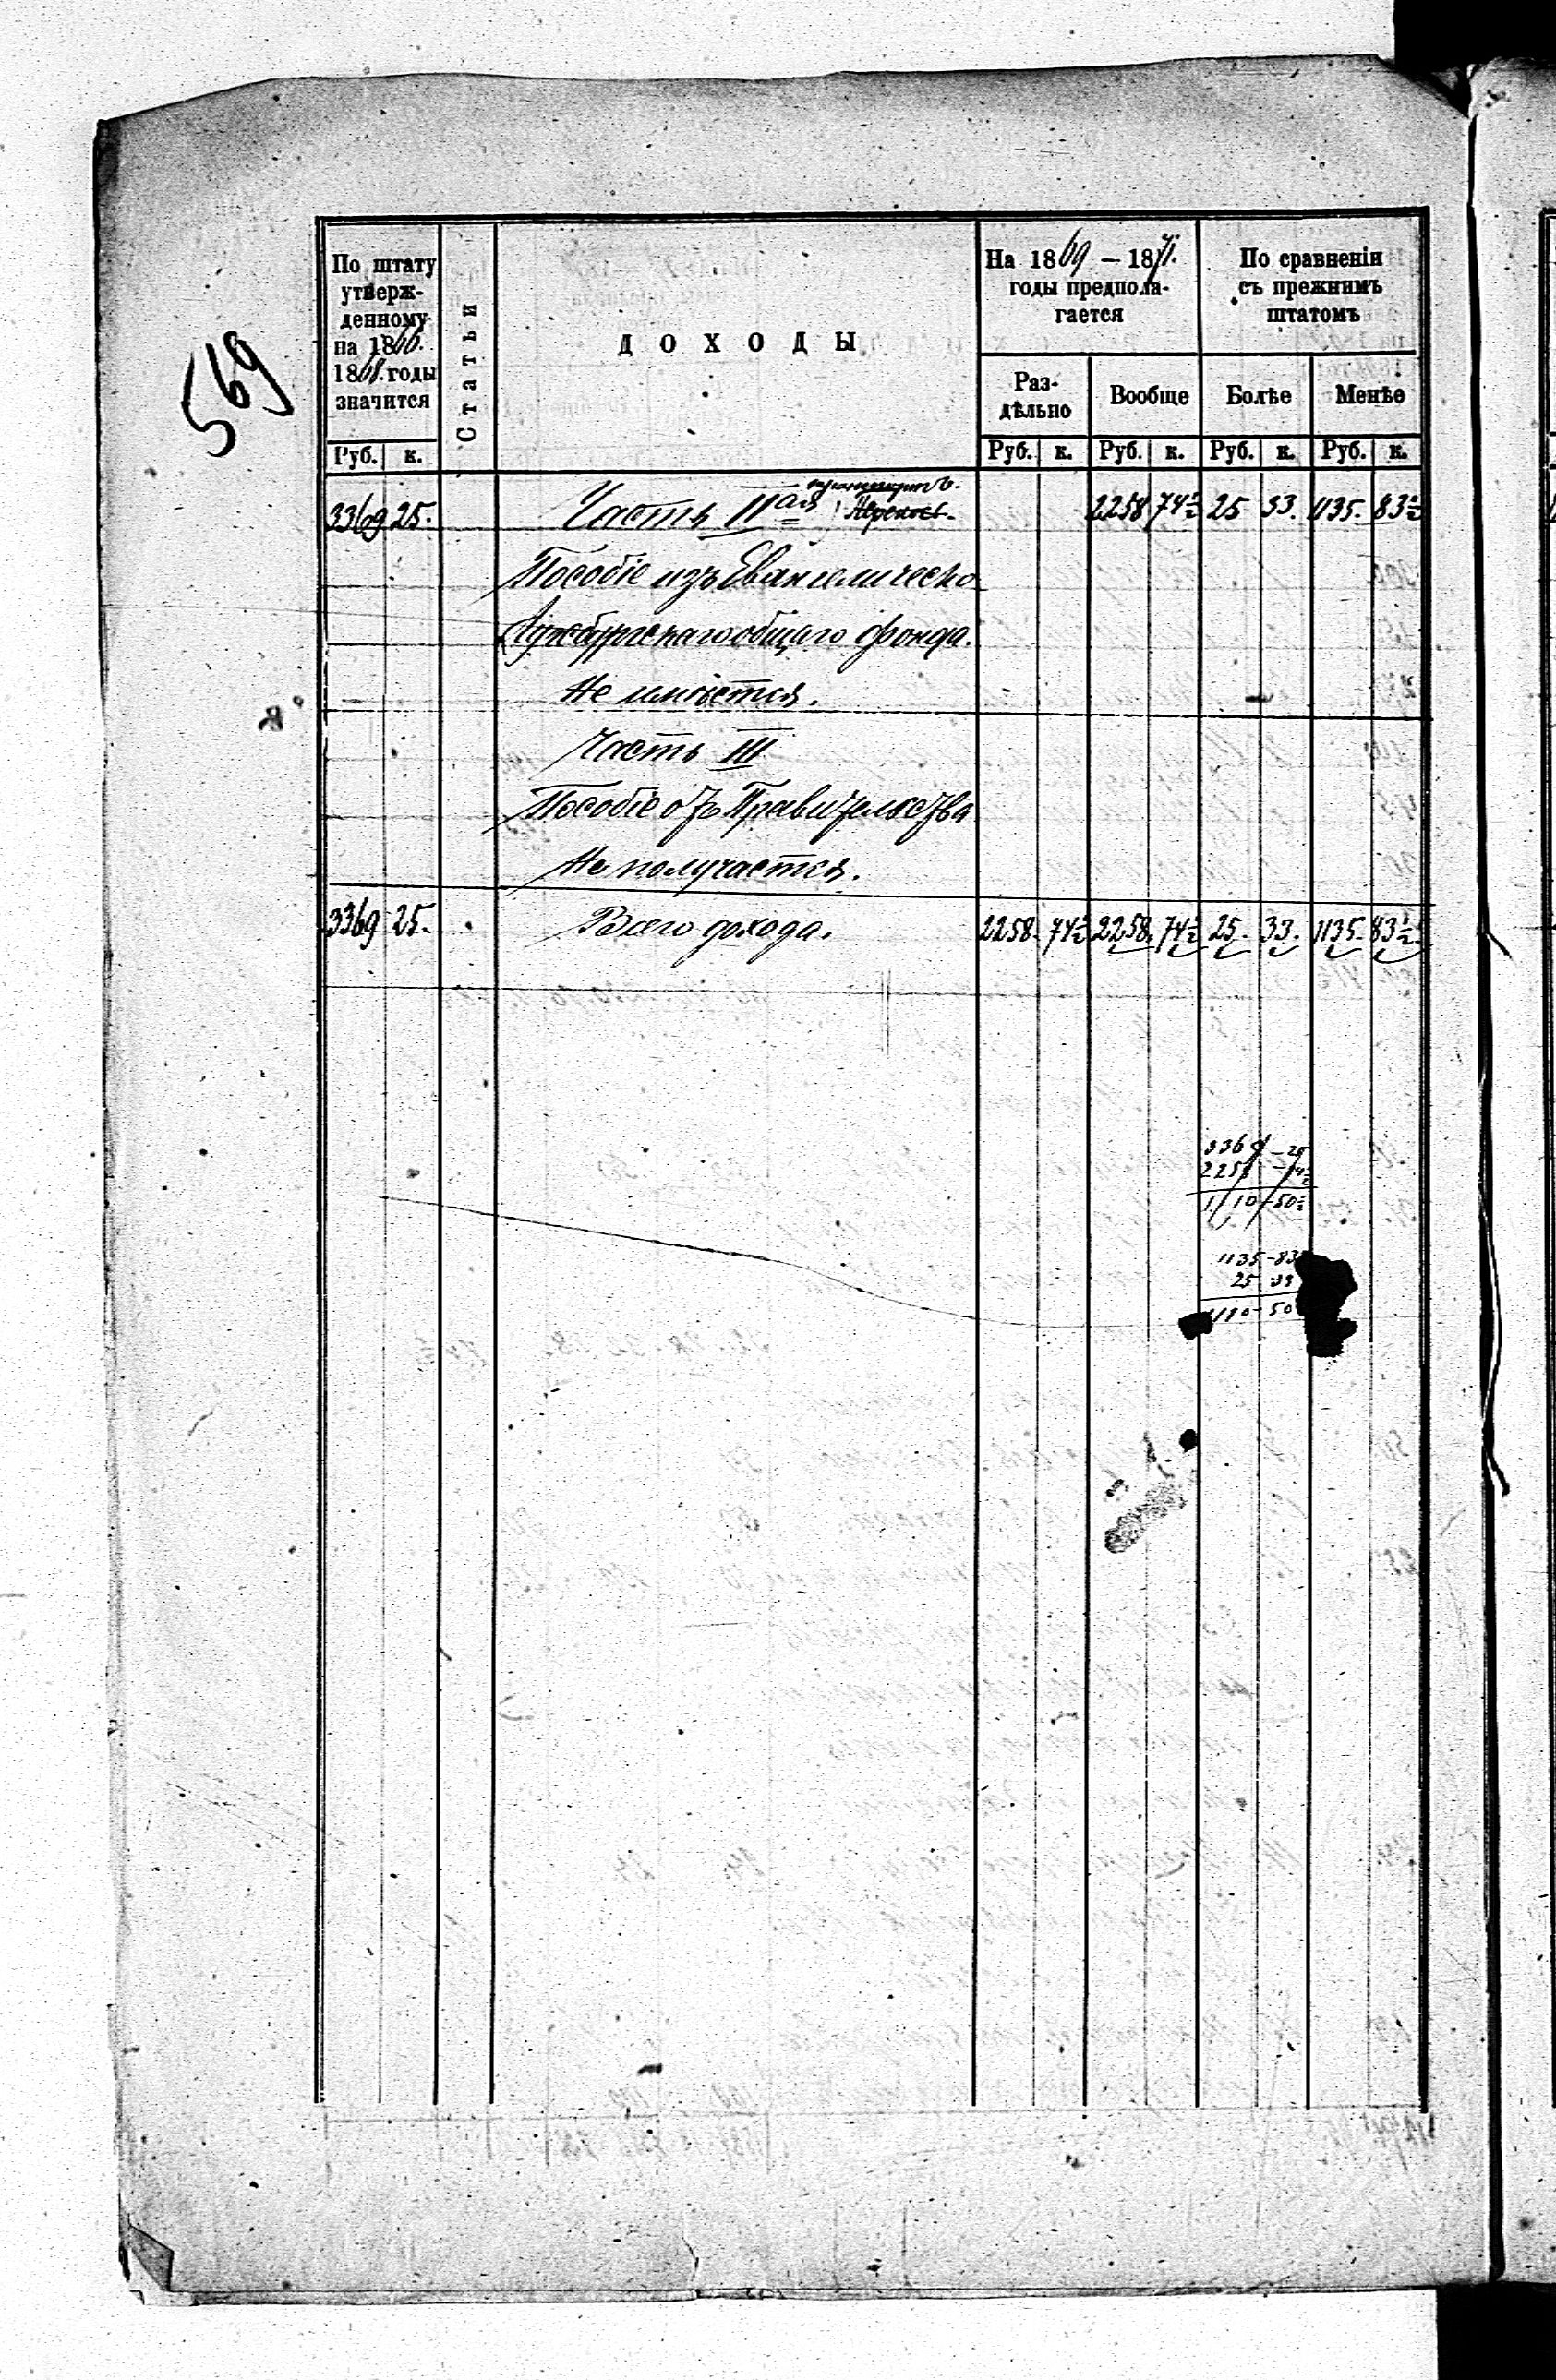 569
По штату
утверж-
денному
на 1866.
1868. годы
значится
Статьи
ДОХОДЫ
На 1869 – 1871.
годы предпола-
гается
По сравненіи
съ прежнимъ
штатомъ
Раз-
дѣльно
Вообще
Болѣе
Менѣе
Руб. к. Руб. к. Руб. к. Руб. к. Руб. к.
транспортъ.
3369 25. Часть IIая Переносъ. 2258 74½ 25 33. 1135. 83½
Пособіе изъ Евангелическо
Аугсбургскаго общаго фонда.
Не имѣется.
Часть III
Пособіе отъ Правительства
Не получается.
3369 25. Всего дохода. 2258. 74½ 2258. 74½ 25. 33. 1135. 83½
3369 – 25
2258 – 74½
1110 – 50½
1135 – 83
25 33
1110 – 50